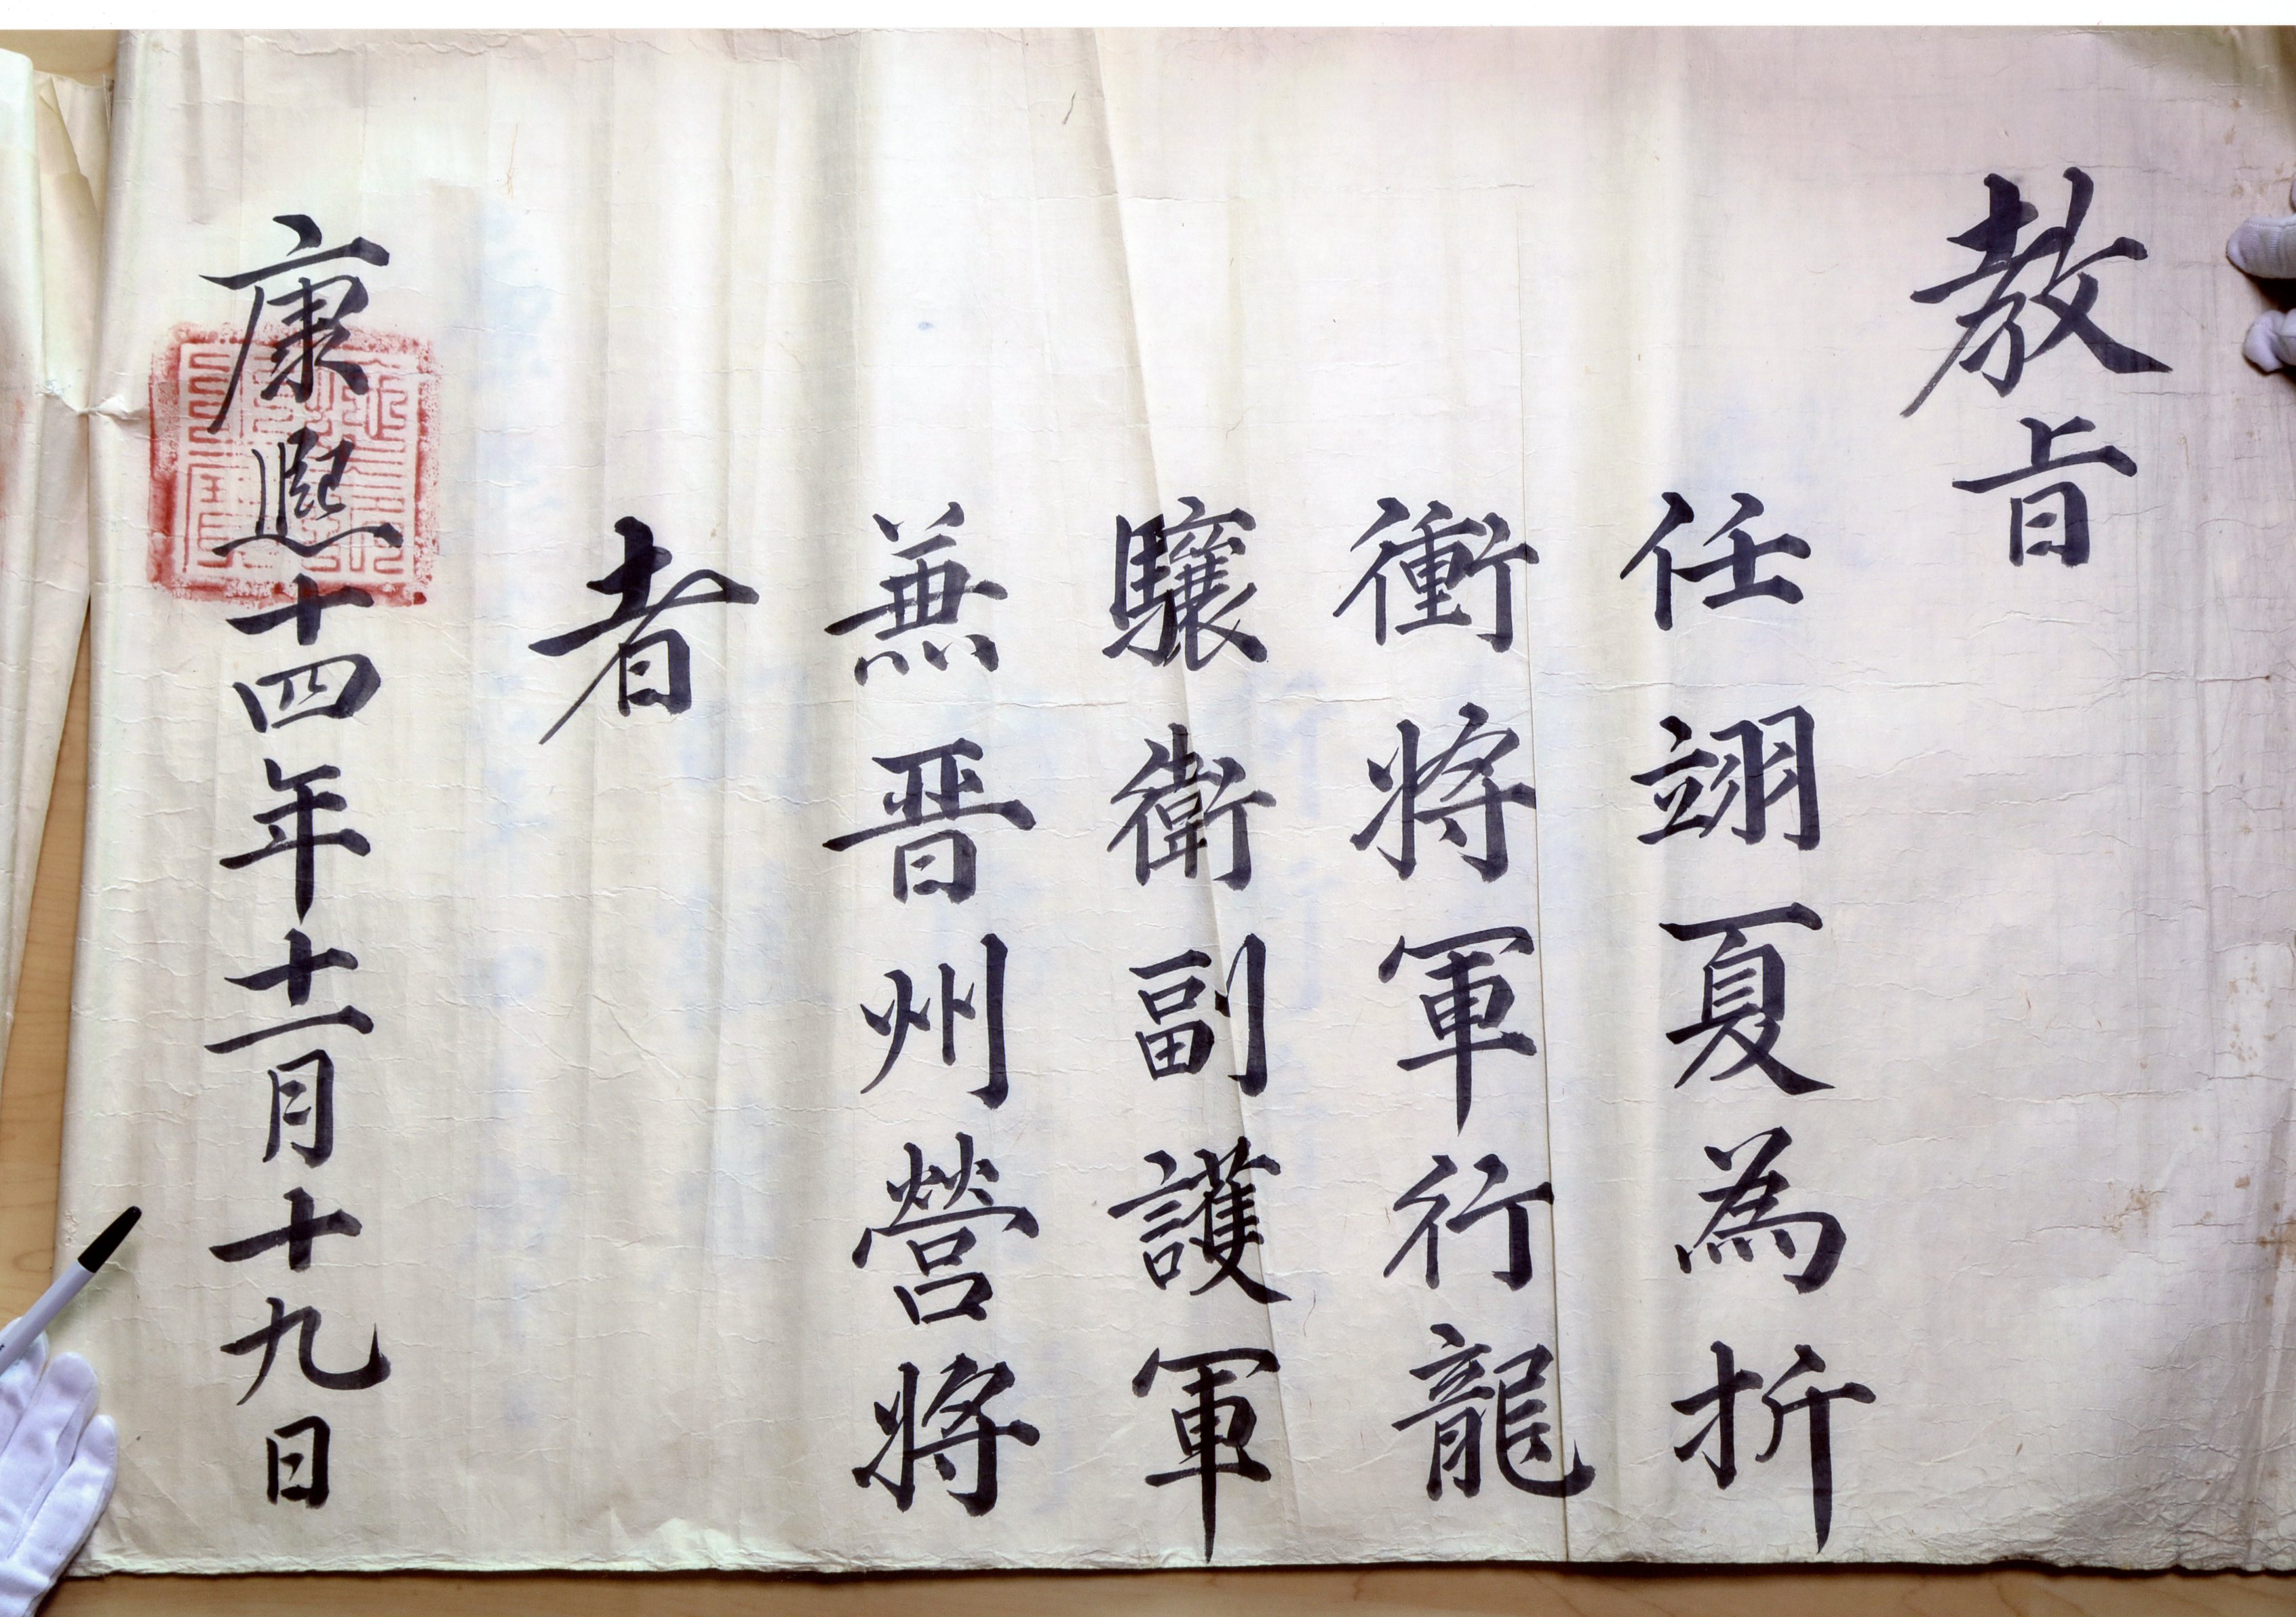 教旨
任翊夏為折
衝將軍行龍
驤衛副護軍
兼晋州營將
者
康熙十四年十一月十九日